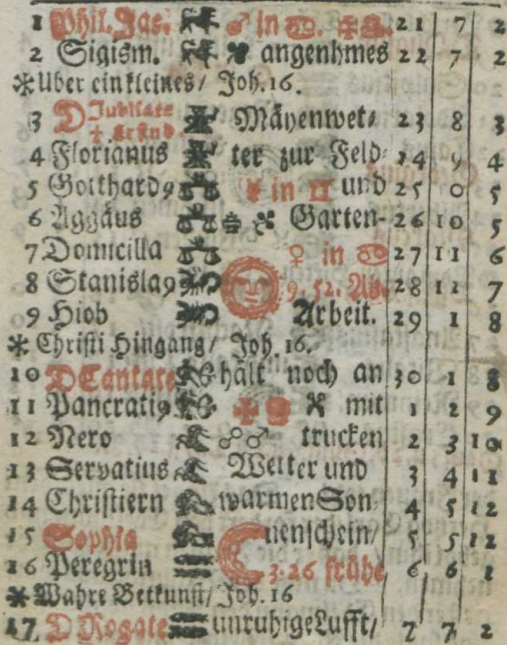 1 Phil. Jac. ♂ in ♋. 21 7 2
2 Sigism. angenhmes 22 7 2
* Uber ein kleines/ Joh. 16.
3 D Jubilate Mäyenwet- 23 8 3
† Erfind.
4 Florianus ter zur Feld- 24 9 4
5 Gotthard9 in ♊ und 25 0 5
6 Aggäus Garten- 26 10 5
7 Domicilla ♀ in ♋ 27 11 6
8 Stanisla9 9. 52. Ab. 28 12 7
9 Hiob Arbeit. 29 1 8
* Christi Hingang/ Joh 16.
10 D Cantate hält noch an 30 1 8
11 Pancrati9 mit 1 2 9
12 Nero ☍♂ trucken 2 3 10
13 Servatius Wetter und 3 4 11
14 Christiern warmen Son- 4 5 12
15 Sophia nenschein/ 5 5 12
16 Peregrin 3. 26 frühe 6 6 1
* Wahre Betkunst/ Joh. 16
17 D Rogate unruhige Lufft/ 7 7 2